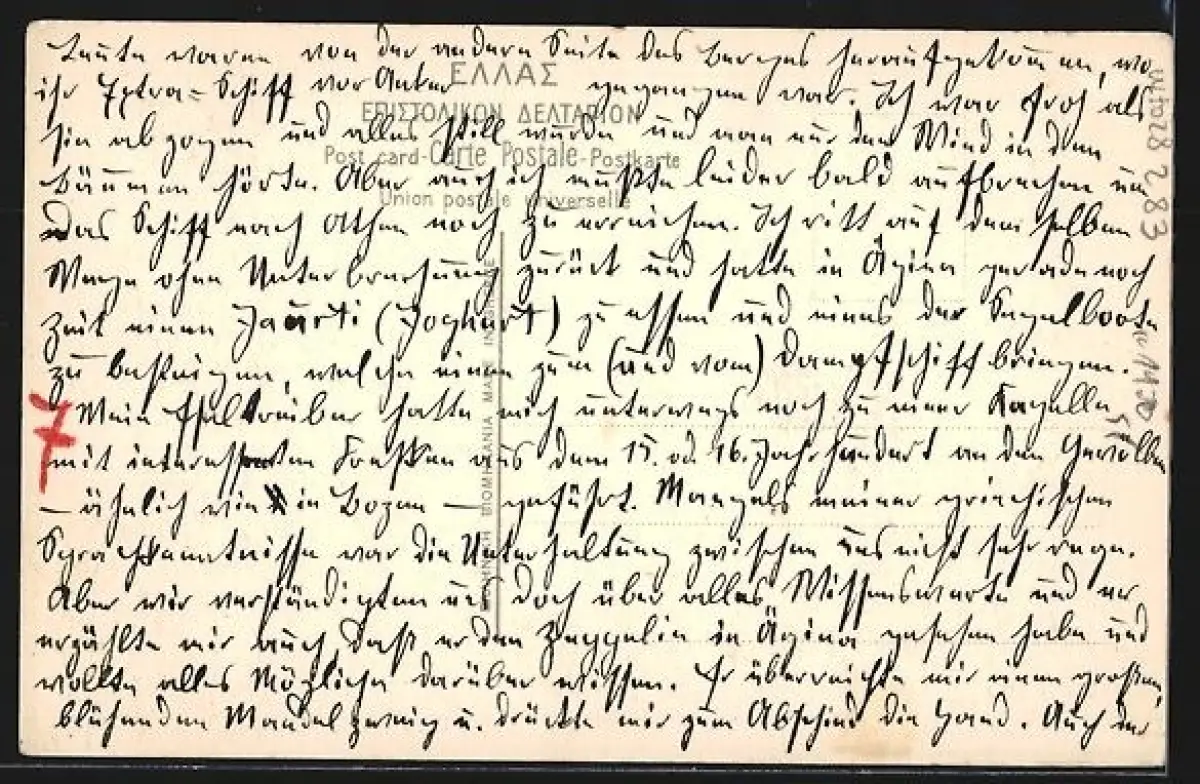 Leute waren von der andern Seite des Berges heraufgekommen, wo
ihr Extra-Schiff vor Anker gegangen war. Ich war froh als
ΕΛΛΑΣ
sie abzogen und alles still wurde und man nur den Wind in den
ΕΠΙΣΤΟΛΙΚΟΝ ΔΕΛΤΑΡΙΟΝ
Post card-Carte Postale-Postkarte
Bäumen hörte. Aber auch ich mußte leider bald aufbrechen um
Union postale universelle
das Schiff nach Athen noch zu erreichen. Ich ritt auf demselben
Wege ohne Unterbrechung zurück und hatte in Ägina gerade noch
Zeit einen Jaurti (Joghurt) zu essen und eines der Segelboote
zu besteigen, welche einen zum (und vom) Dampfschiff bringen.
7 Mein Eseltreiber hatte mich unterwegs noch zu einer Kapelle
mit interessanten Fresken aus dem 15. od. 16. Jahrhundert an den Gewölben
– ähnlich wie in Bozen – geführt. Mangels meiner griechischen
Sprachkenntnisse war die Unterhaltung zwischen uns nicht sehr rege.
Aber wir verständigten uns doch über alles Wissenswerte und er
erzählte mir auch, daß er den Zeppelin in Ägina gesehen habe und
wollte alles Mögliche darüber wissen. Er überreichte mir einen großen,
blühenden Mandelzweig u. drückte mir zum Abschied die Hand. Auch der